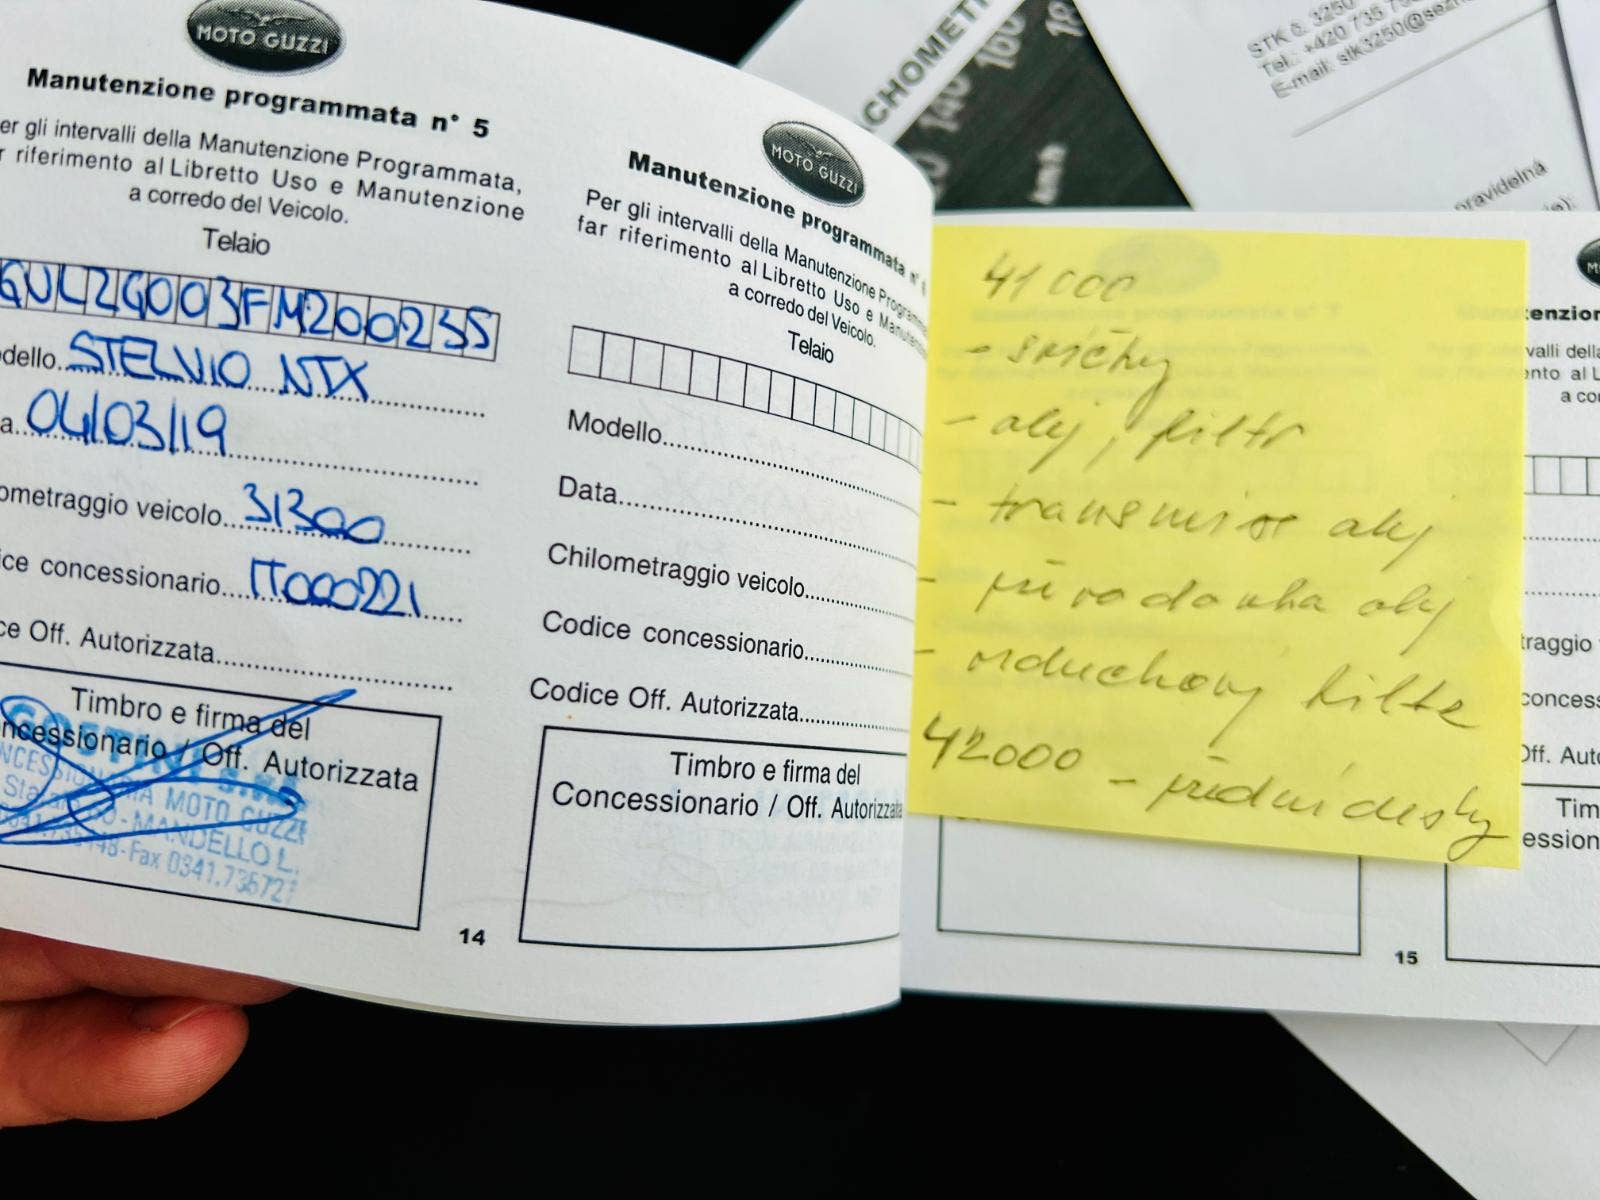 MOTO GUZZI
Manutenzione programmata n° 5
er gli intervalli della Manutenzione Programmata,
r riferimento al Libretto Uso e Manutenzione
a corredo del Veicolo.
Telaio
GULZG003FM200235
dello. STELVIO NTX
a. 04/03/19
ometraggio veicolo. 31300
ice concessionario. IT000221
ce Off. Autorizzata
Timbro e firma del
ncessionario / Off. Autorizzata
MOTO GUZZI
MANDELLO L.
Fax 0341.
14
MOTO GUZZI
Manutenzione programmata n°
Per gli intervalli della Manutenzione Programm
far riferimento al Libretto Uso e Manuten
a corredo del Veicolo.
Telaio
Modello
Data
Chilometraggio veicolo
Codice concessionario
Codice Off. Autorizzata
Timbro e firma del
Concessionario / Off. Autorizzata
41 000
- svíčky
- olej, filtr
- transmise olej
- převodovka olej
- vzduchový filtr
42000 - přední desky
15
CHOMET
140 160 18
STK č. 3250
Tel.: +420 735
E-mail: stk3250@sezn
pravidelná
enzion
valli della
nto al L
a co
raggio
concess
Off. Aut
Tim
ession